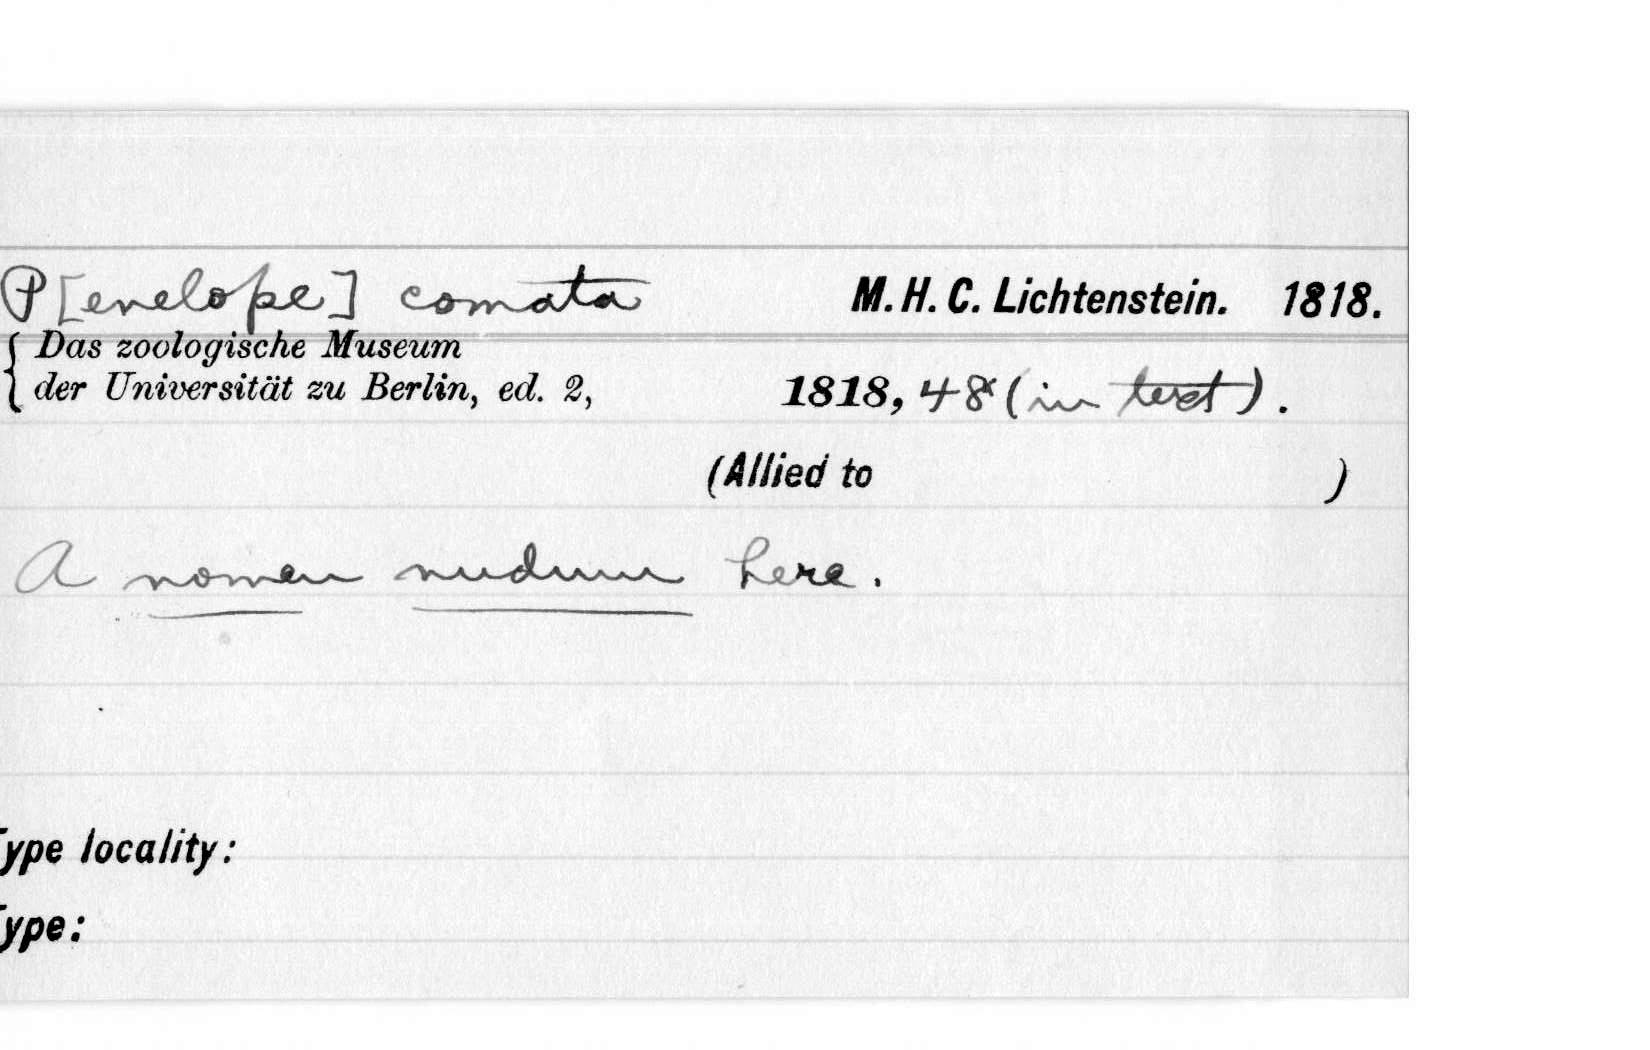 P[enelope] comata M. H. C. Lichtenstein. 1818.
Das zoologische Museum
der Universität zu Berlin, ed. 2, 1818, 48 (in text).
(Allied to )
A nomen nudum here.
Type locality:
Type: